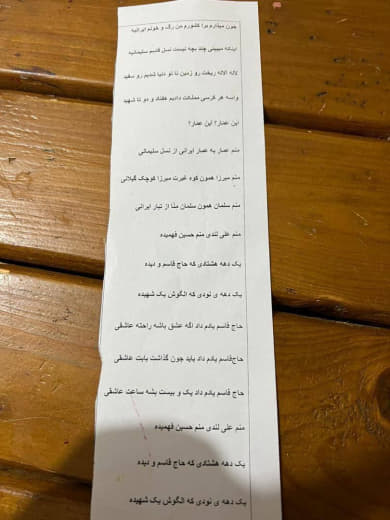 جون میذارم برا کشورم من رگ و خونم ایرانیه
اینکه میبینی چند بچه نیست نسل قاسم سلیمانیه
لاله لاله ریخت رو زمین تا تو دنیا شدیم رو سفید
واسه هر کرسی مملکت دادیم هفتاد و دو تا شهید
این عمار؟ این عمار؟
منم عمار یه عمار ایرانی از نسل سلیمانی
منم میرزا همون کوه غیرت میرزا کوچک گیلانی
منم سلمان همون سلمان منا از تبار ایرانی
منم علی لندی منم حسین فهمیده
یک دهه هشتادی که حاج قاسم و دیده
یک دهه ی نودی که الگوش یک شهیده
حاج قاسم یادم داد اگه عشق باشه راحته عاشقی
حاج‌قاسم یادم داد باید جون گذاشت بابت عاشقی
حاج قاسم یادم داد یک و بیست بشه ساعت عاشقی
منم علی لندی منم حسین فهمیده
یک دهه هشتادی که حاج قاسم و دیده
یک دهه ی نودی که الگوش یک شهیده